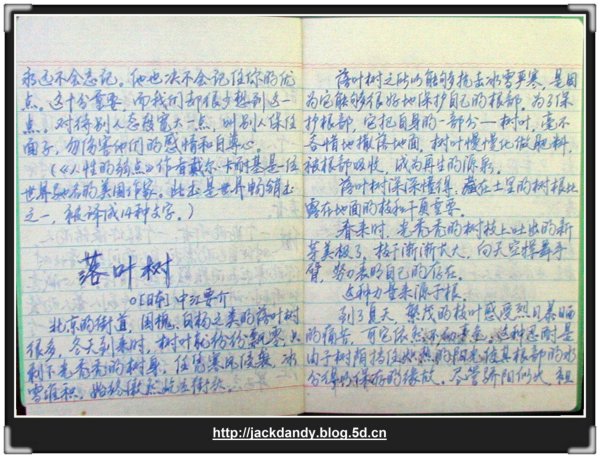 永远不会忘记。他也决不会记住你的优
点。这十分重要,而我们却很少想到这一
点。对待别人态度宽大一点,叫别人保住
面子,勿伤害他们的感情和自尊心。
(《人性的弱点》作者戴尔·卡耐基是位
世界驰名的美国作家。此书是世界畅销书
之一,被译成14种文字。)
落叶树
〔日本〕中江要介
北京的街道,国槐、白杨之类的落叶树
很多,冬天到来时,树叶纷纷飘零,只
剩下光秃秃的树身,任凭寒风侵袭,冰
雪堆积,始终傲然站立街头。
落叶树之所以能够抗击冰雪严寒,是因
为它能够很好地保护自己的根部。为了保
护根部,它把自身的一部分——树叶,毫不
吝惜地撒落地面,树叶慢慢化做肥料,
被根部吸收,成为再生的源泉。
落叶树深深懂得,藏在土里的树根比
露在地面的枝和干更重要。
春来时,光秃秃的树枝上吐出的新
芽美极了,枝子渐渐长大,向天空挥舞手
臂,努力表明自己的存在。
这种力量来源于根。
到了夏天,繁茂的枝叶感受烈日暴晒
的痛苦,可它依然不动声色。这种忍耐是
由于树荫挡住炎热的阳光使其根部的水
分得以保存的缘故。尽管骄阳似火,粗
http://jackdandy.blog.5d.cn